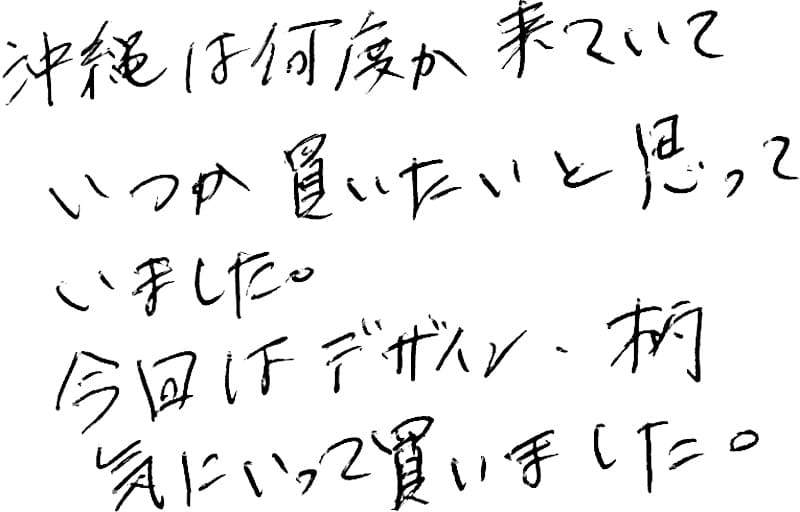 沖縄は何度か来ていて
いつか買いたいと思って
いました。
今回はデザイン、柄
気にいって買いました。